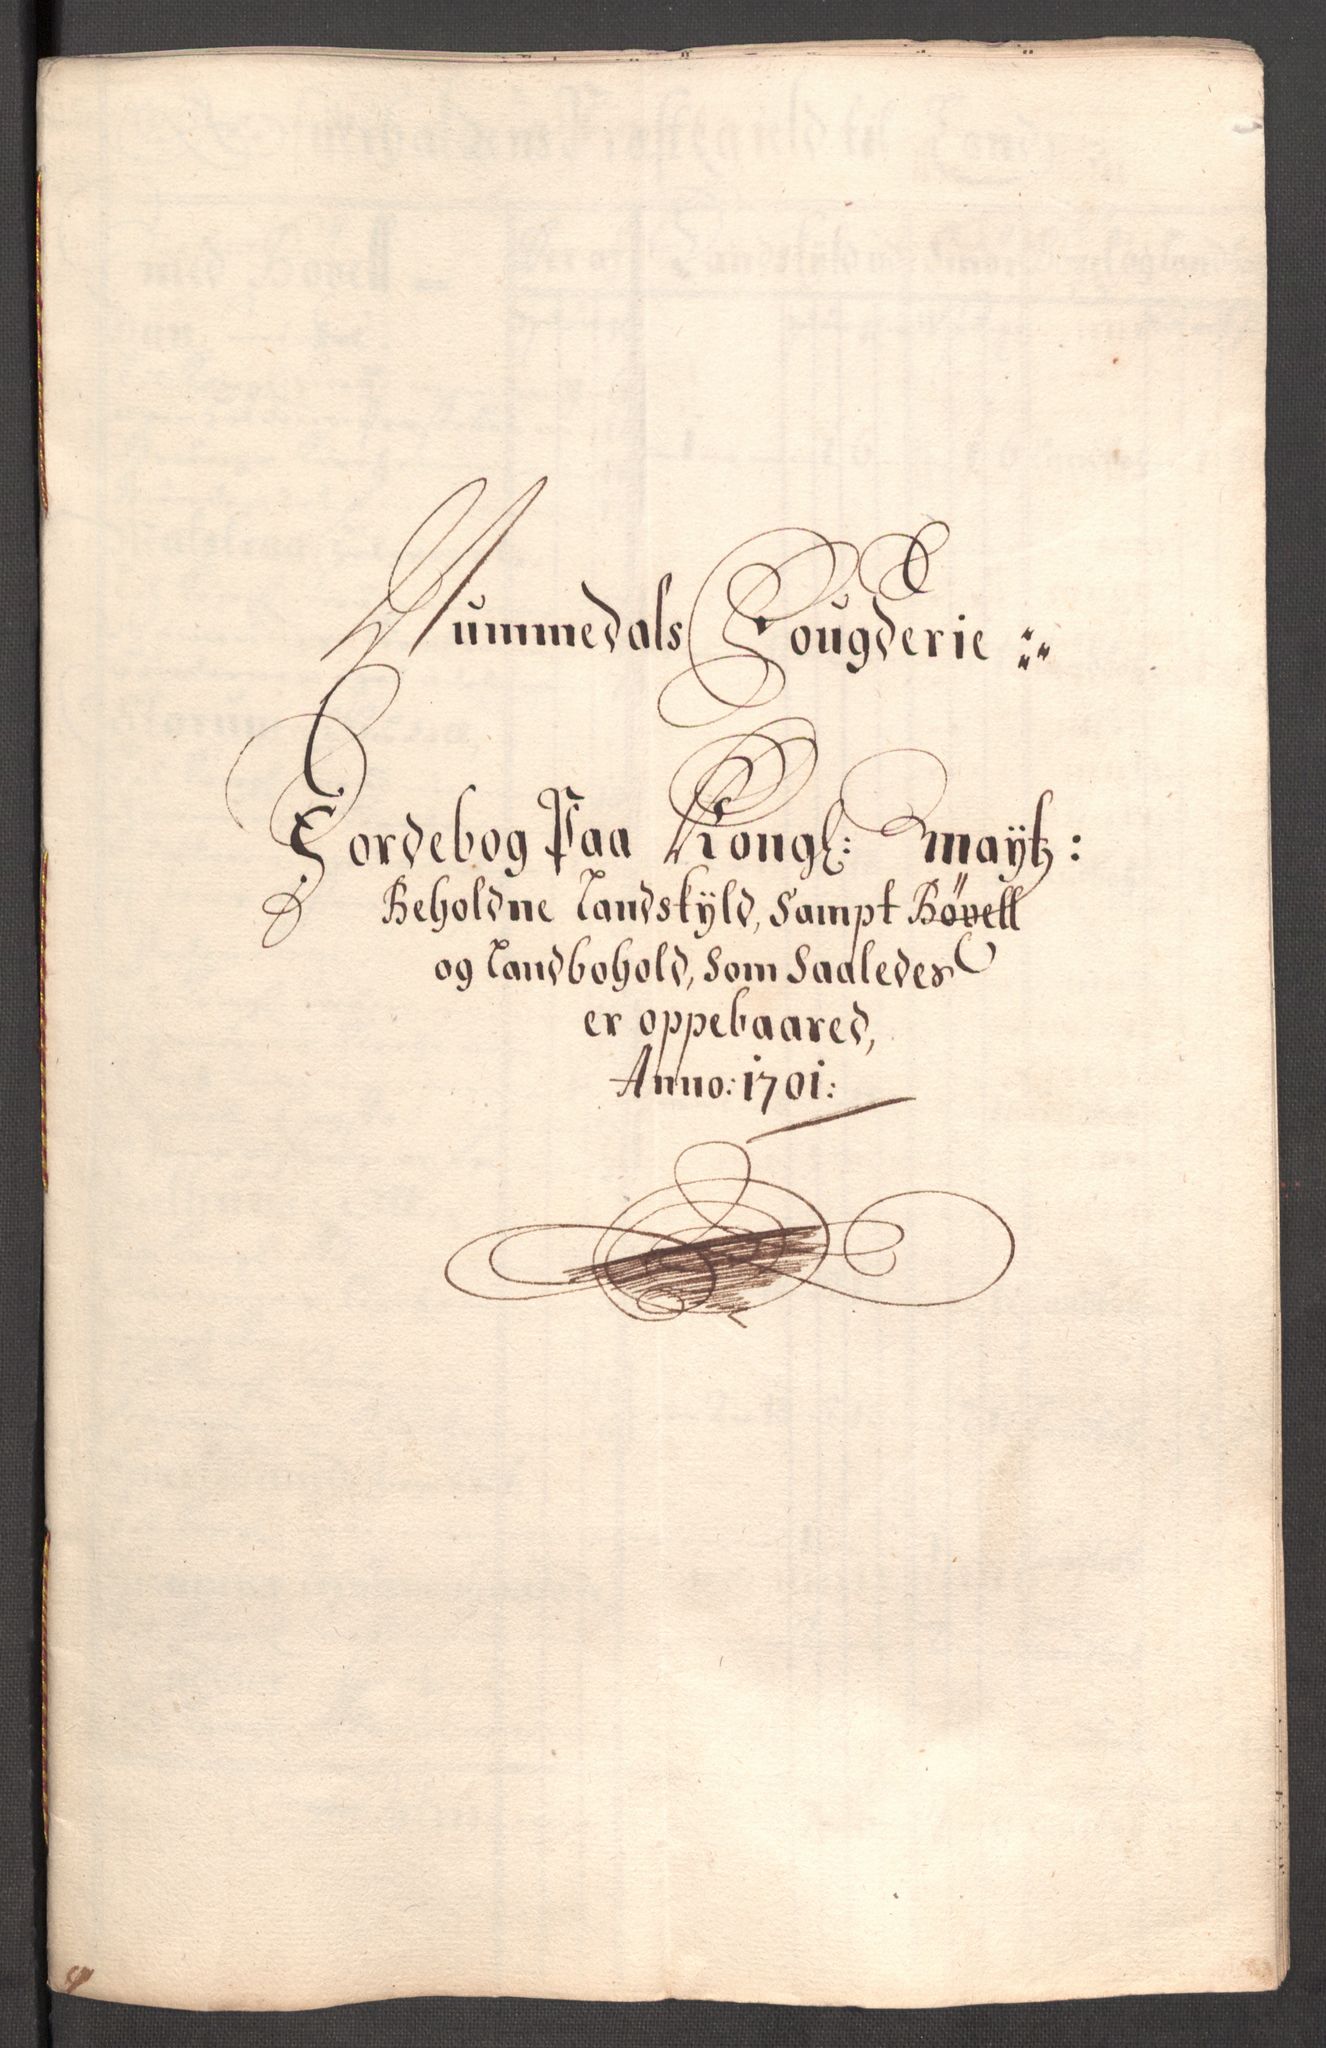 Nummedals Fougderie :
Jordebog Paa Kongl: Maytz:
Beholdne Landskÿld, Sampt Böxell
og Landbohold, Som Saaledes
er oppebaared,
Anno: 1701: